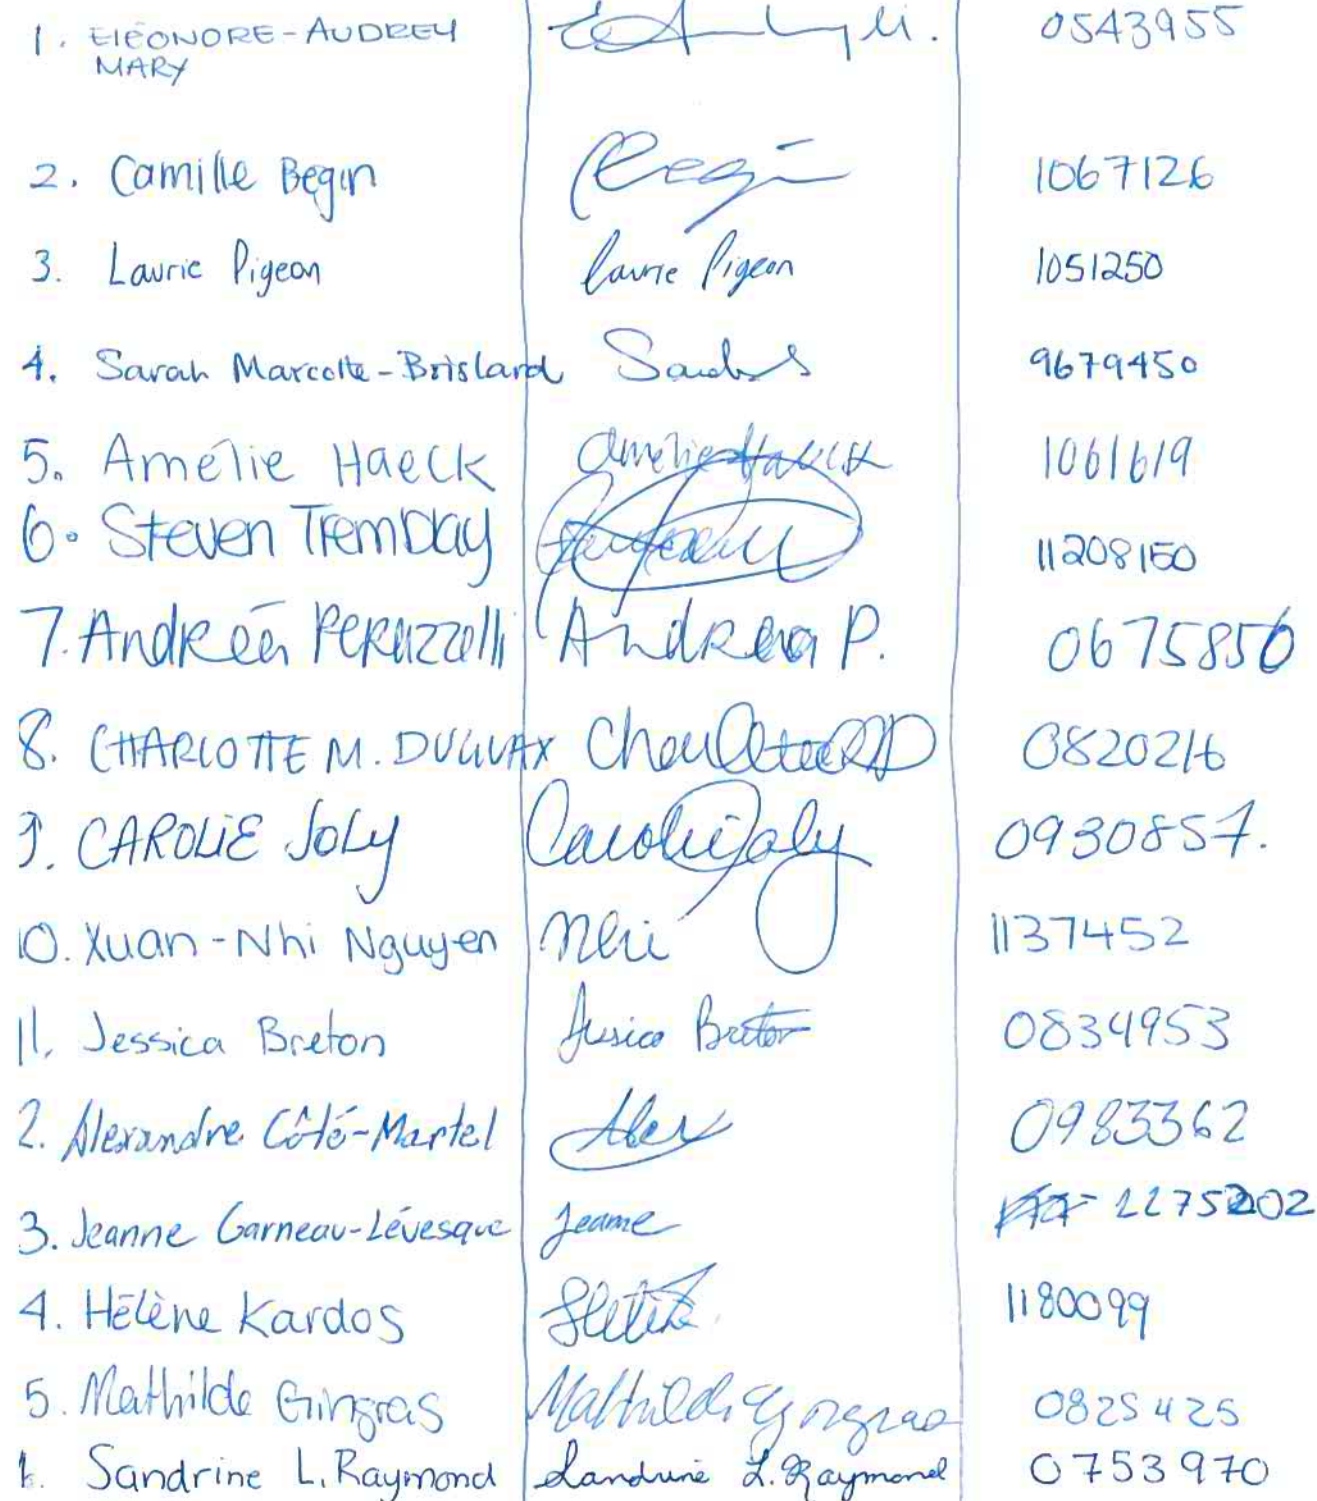 1. ElÉONORE-AUDREY 0543955
MARY
2. Camille Begin Begin 1067126
3. Laurie Pigeon Laurie Pigeon 1051250
4. Sarah Marcotte-Brislard 9679450
5. Amélie Haeck Amélie Haeck 1061619
6. Steven Tremblay 11208150
7. Andreea Peruzzelli Andreea P. 0675856
8. CHARLOTTE M. 0820216
9. CAROLIE JOLY Carolie Joly 0930857.
10. Xuan-Nhi Nguyen Nhi 1137452
11. Jessica Breton Jessica Breton 0834953
2. Alexandre Côté-Martel Alex 0983362
3. Jeanne Garneau-Lévesque Jeanne
4. Hélène Kardos 1180099
5. Mathilde Gingras Mathilde Gingras 0825425
Sandrine L. Raymond Sandrine L. Raymond 0753970